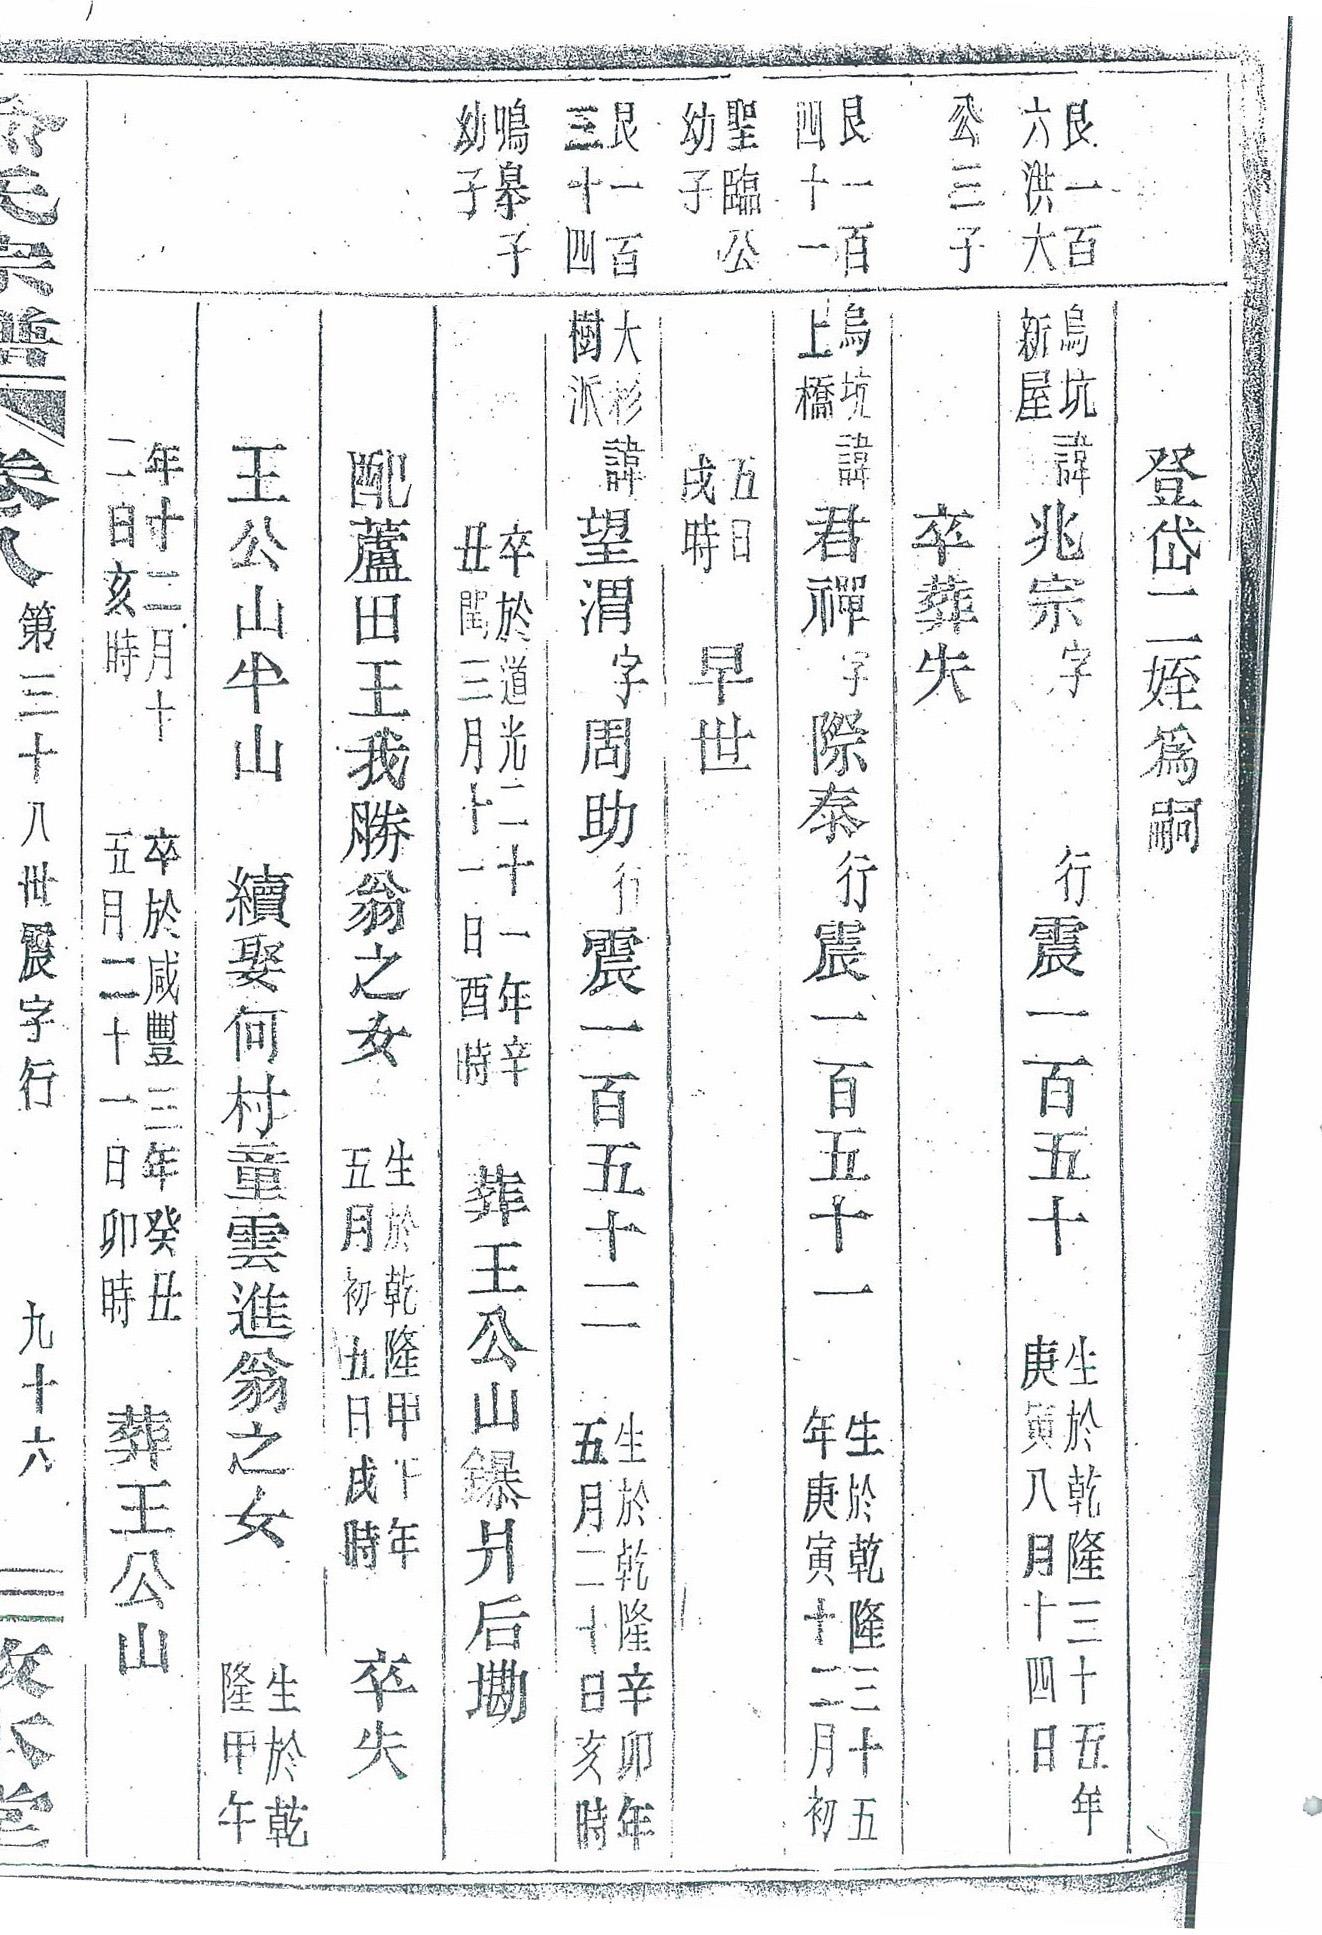 登岱二姪為嗣
艮一百六洪大
烏坑新屋
諱兆宗字 行震一百五十 生於乾隆三十五年庚寅八月十四日
公三子
卒葬失
艮一百四十一
烏坑上橋
諱君禪字際泰行震一百五十一 生於乾隆三十五年庚寅十二月初
聖臨公幼子
五日戌時 早世
艮一百三十四
大杉樹派
諱望渭字周助行震一百五十二 生於乾隆辛卯年五月二十日亥時
鳴皋子幼子
卒於道光二十一年辛丑閏三月十一日酉時 葬王公山鑤爿后墈
配蘆田王我勝翁之女 生於乾隆甲午年五月初五日戌時 卒失
王公山半山 續娶何村童雲進翁之女 生於乾隆甲午
年十二月十二日亥時 卒於咸豐三年癸丑五月二十一日卯時 葬王公山
氏宗譜 卷八 第三十八世震字行 九十六 堂